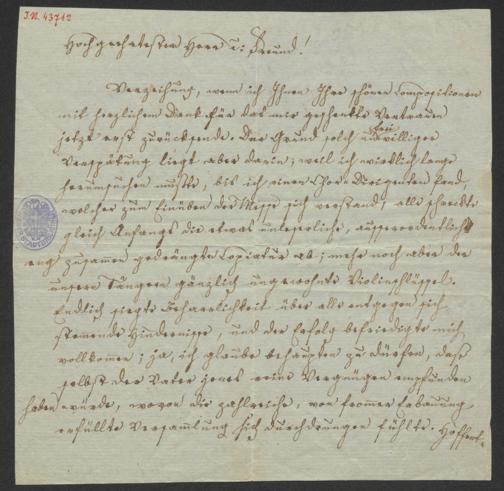 I.N. 43712
Hochgeehrtester Herr u: Freund!
Verzeihung, wenn ich Ihnen Ihre schönen Compositionen
mit herzlichem Dank für das mir geschenkte Vertrauen
jetzt erst zurücksende. Der Grund solch unfreiwilliger
Verspätung liegt aber darin, weil ich wirklich lange
herumsuchen mußte, bis ich einen Chor-Dirigenten fand,
welcher zum Einüben der Messe sich verstand; alle schreckte
gleich Anfangs die etwas unleserliche, ausserordentlich
eng zusammen gedrängte Copiatur ab; mehr noch aber der
unsern Sängern gänzlich ungewohnte Violinschlüssel.
Endlich siegte Beharrlichkeit über alle entgegen sich
stemmende Hindernisse, und der Erfolg befriedigte mich
vollkommen; ja, ich glaube behaupten zu dürfen, daß
selbst der Vater jenes reine Vergnügen empfunden
haben würde, wovon die zahlreiche, von frommer Erbauung
erfüllte Versammlung sich durchdrungen fühlte. Hoffent-